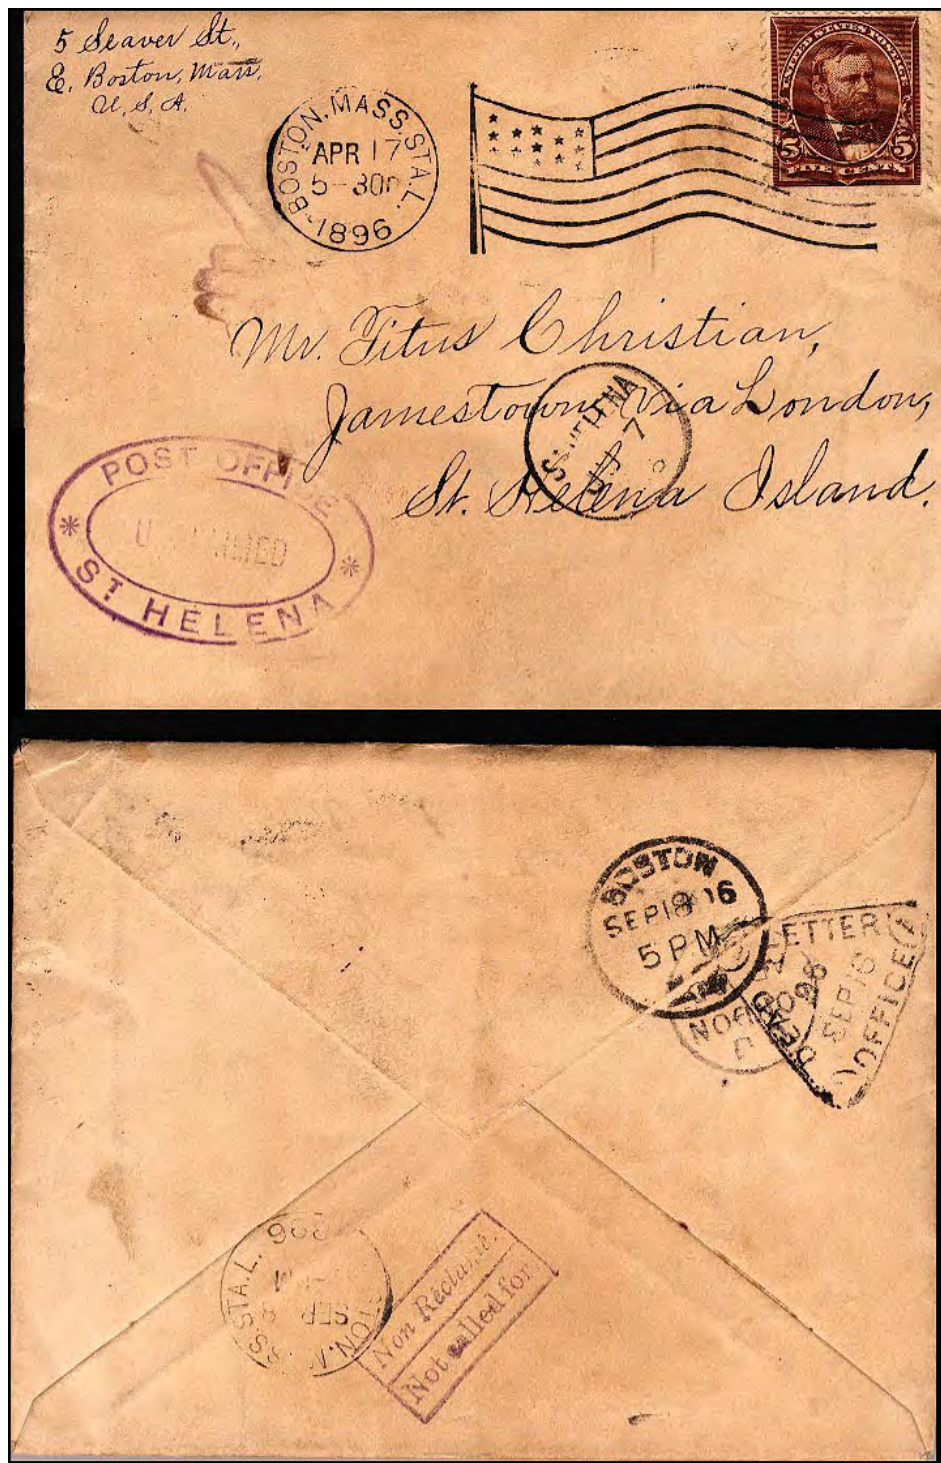 5 Seaver St.,
E. Boston, Mass.
U. S. A.
BOSTON, MASS. STA. L.
APR 17
5-30P
1896
UNITED STATES POSTAGE
5 5
FIVE CENTS
Mr. Titus Christian,
Jamestown, via London,
St. Helena Island.
ST HELENA
7
POST OFFICE
ST HELENA
BOSTON
SEP 18
5 PM
DEAD LETTER OFFICE
SEP 16
96
STA. L.
SEP
Non Réclamé.
Not called for